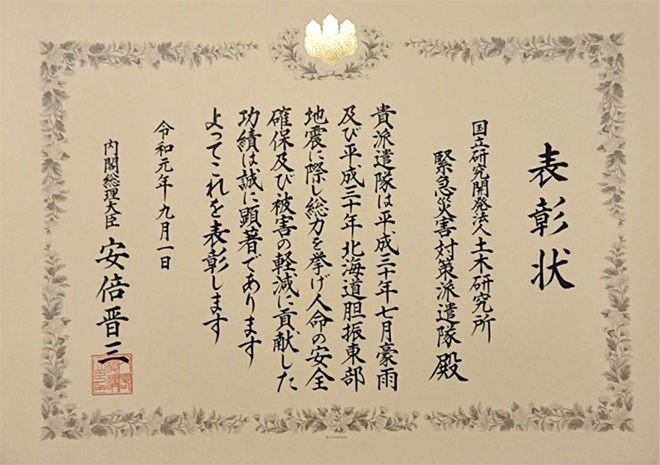 表彰状
国立研究開発法人土木研究所
緊急災害対策派遣隊 殿
貴派遣隊は平成三十年七月豪雨
及び平成三十年北海道胆振東部
地震に際し総力を挙げ人命の安全
確保及び被害の軽減に貢献した
功績は誠に顕著であります
よってこれを表彰します
令和元年九月一日
内閣総理大臣 安倍晋三